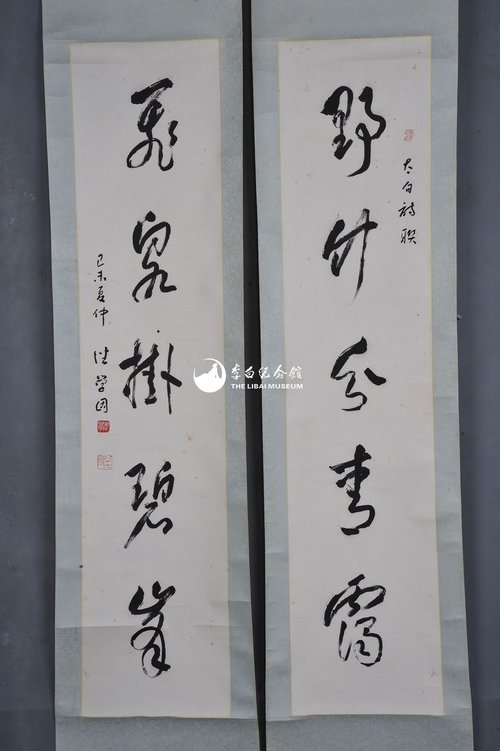 野竹分青霭
太白诗联
飞泉挂碧峰
己未夏仲
学围
李白纪念馆
THE LIBAI MUSEUM